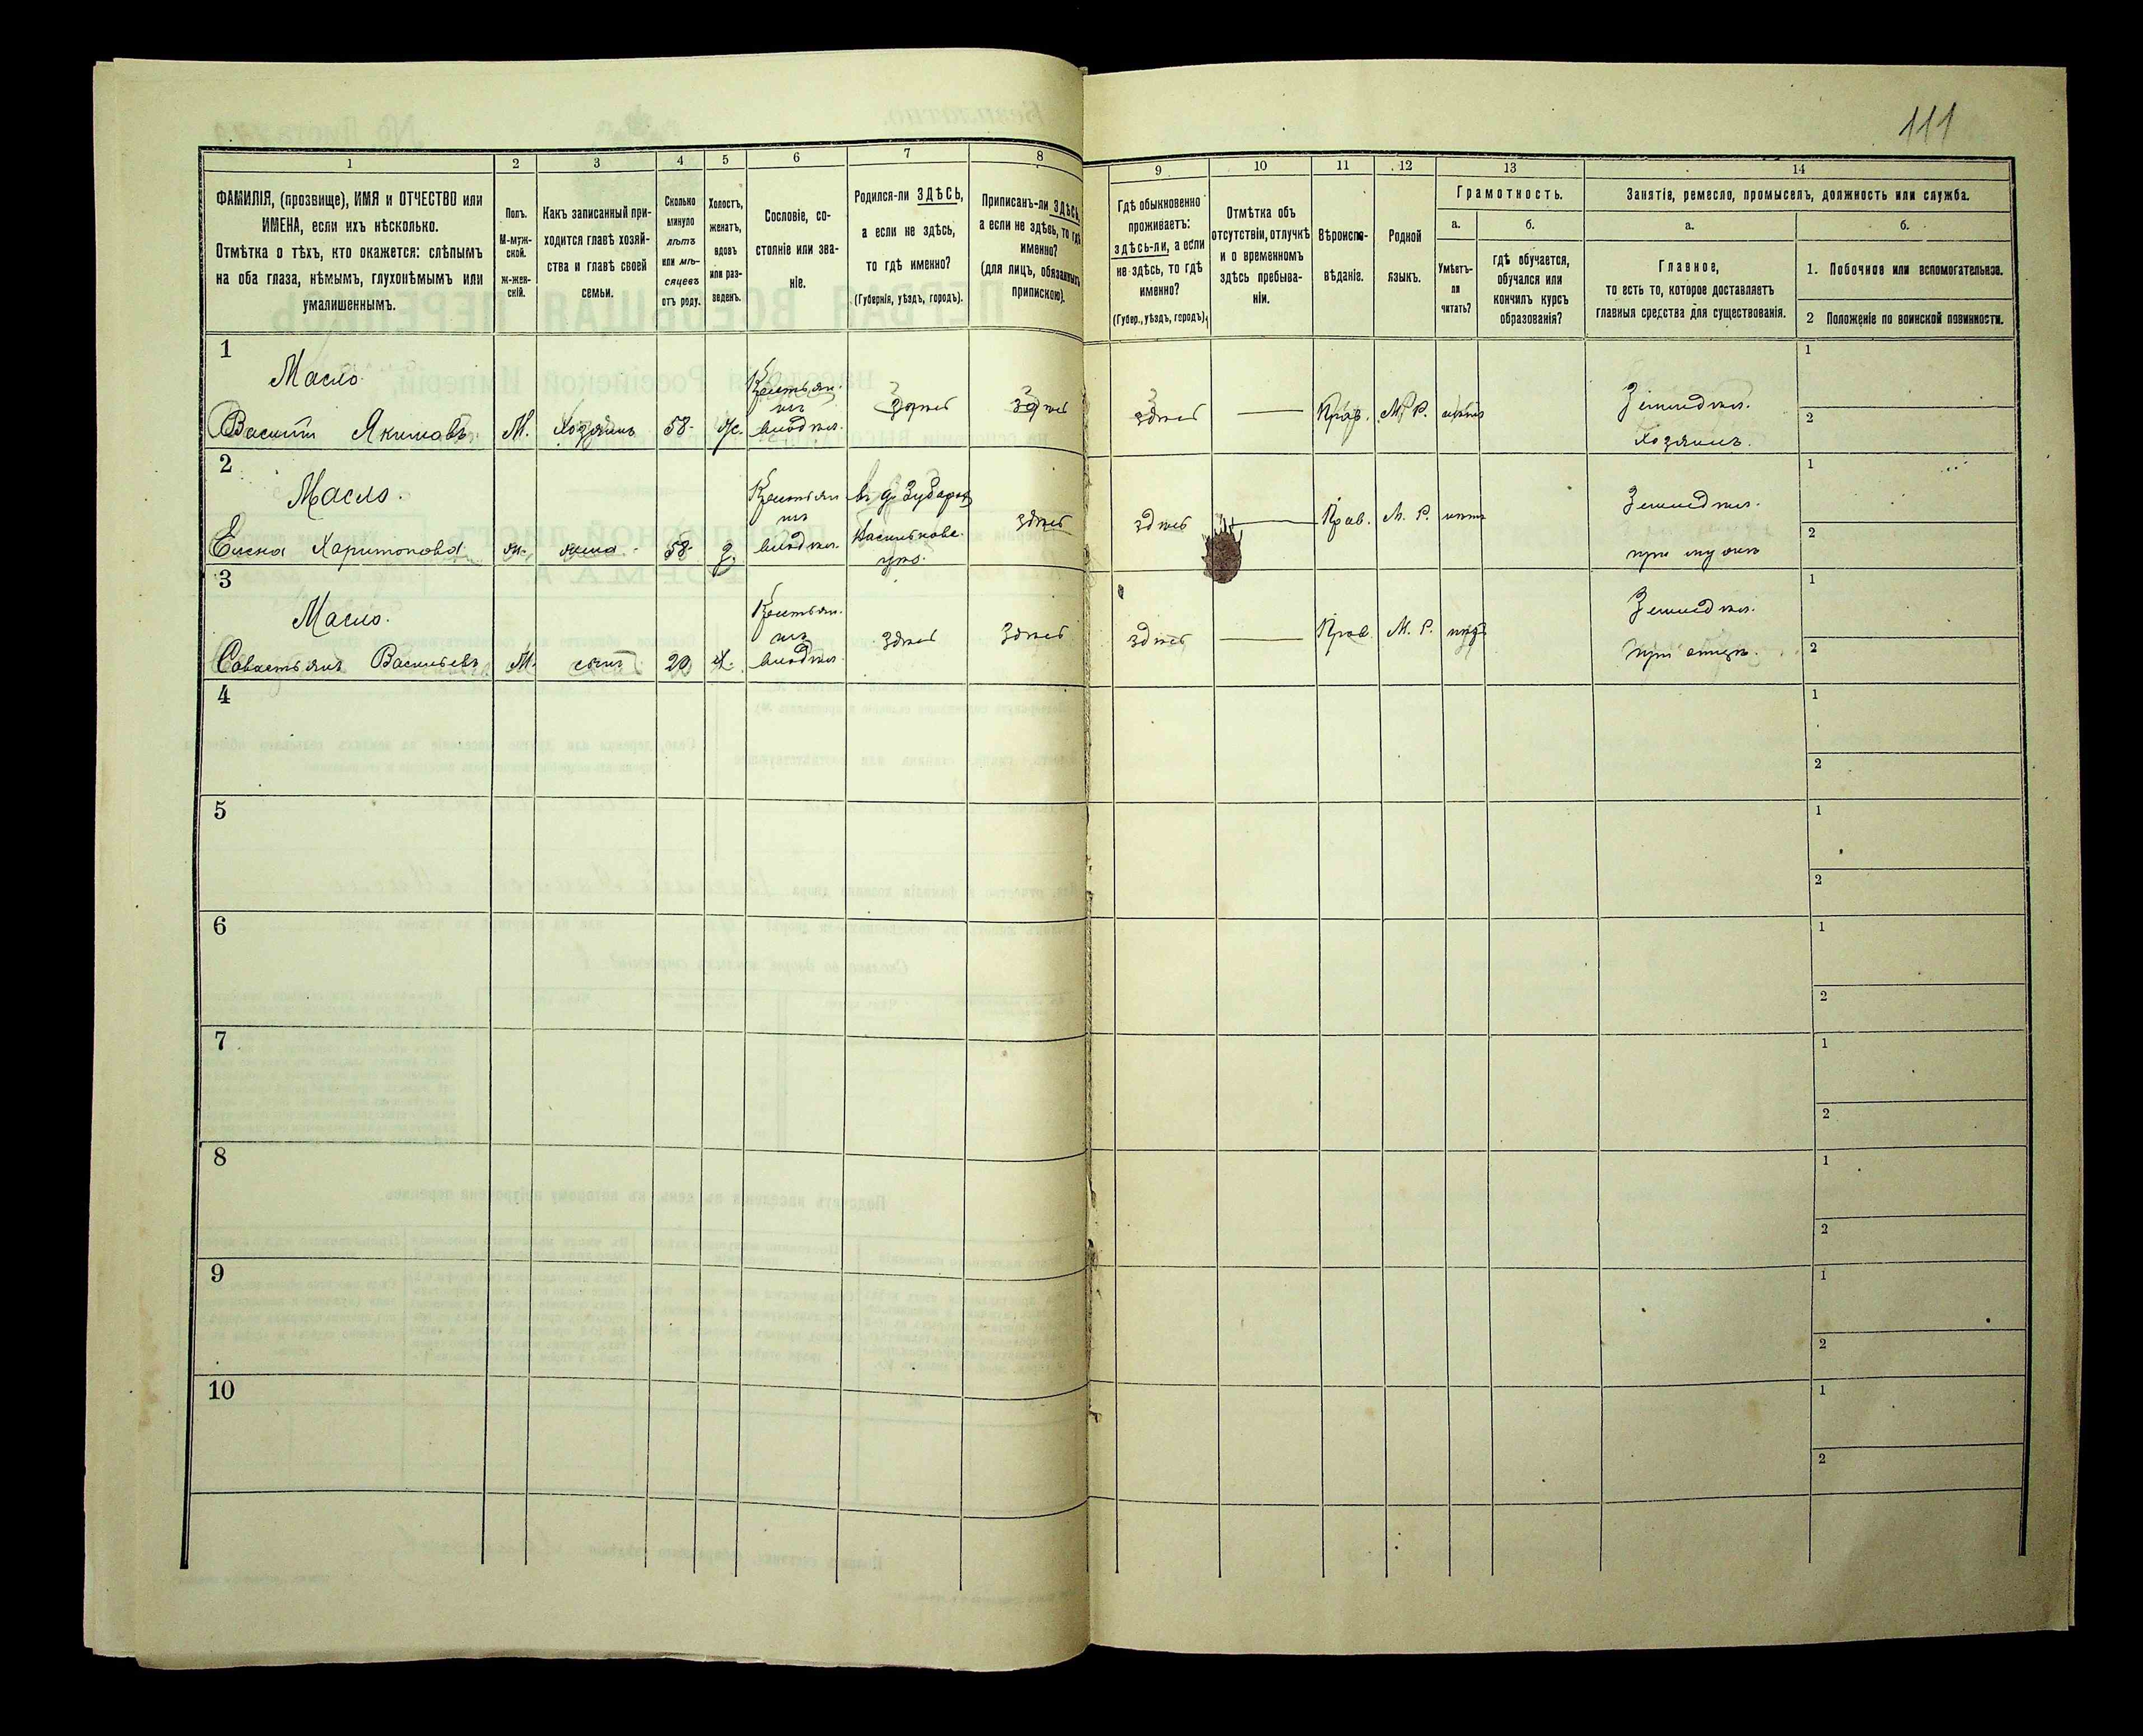 111
1
2
3
4
5
6
7
8
9
10
11
12
13
14
ФАМИЛІЯ, (прозвище), ИМЯ и ОТЧЕСТВО или
ИМЕНА, если ихъ нѣсколько.
Отмѣтка о тѣхъ, кто окажется: слѣпымъ
на оба глаза, нѣмымъ, глухонѣмымъ или
умалишеннымъ.
Полъ.
М-муж-
ской.
Ж-жен-
скій.
Какъ записанный при-
ходится главѣ хозяй-
ства и главѣ своей
семьи.
Сколько
минуло
лѣтъ
или мѣ-
сяцевъ
отъ роду.
Холостъ,
женатъ,
вдовъ
или раз-
веденъ.
Сословіе, со-
стояніе или зва-
ніе.
Родился-ли ЗДѢСЬ,
а если не здѣсь,
то гдѣ именно?
(Губернія, уѣздъ, городъ).
Приписанъ-ли ЗДѢСЬ,
а если не здѣсь, то гдѣ
именно?
(для лицъ, обязанныхъ
припискою).
Гдѣ обыкновенно
проживаетъ:
здѣсь-ли, а если
не здѣсь, то гдѣ
именно?
(Губер., уѣздъ, городъ).
Отмѣтка объ
отсутствіи, отлучкѣ
и о временномъ
здѣсь пребыва-
ніи.
Вѣроиспо-
вѣданіе.
Родной
языкъ.
Грамотность.
а.
б.
Умѣетъ-
ли
читать?
гдѣ обучается,
обучался или
кончилъ курсъ
образованія?
Занятіе, ремесло, промыселъ, должность или служба.
а.
б.
Главное,
то есть то, которое доставляетъ
главныя средства для существованія.
1. Побочное или вспомогательное.
2 Положеніе по воинской повинности.
1
Масло.
Василій Якимовъ М. Хозяинъ 58. Ж.
Крестьян.
изъ
владѣл.
здѣсь здѣсь здѣсь — Прав. М. Р. нѣтъ
Земледѣл.
Хозяинъ.
1
2
2
Масло.
Елена Харитонова ж. жена 58 З.
Крестьян
изъ
владѣл.
въ д.
здѣсь здѣсь — Прав. М. Р. нѣтъ
Земледѣл.
при мужѣ
1
2
3
Масло.
Савастьянъ Васильевъ М. сынъ 20 Х.
Крестьян.
изъ
владѣл.
здѣсь здѣсь здѣсь — Прав. М. Р. нѣтъ
Земледѣл.
при отцѣ.
1
2
4
1
2
5
1
2
6
1
2
7
1
2
8
1
2
9
1
2
10
1
2